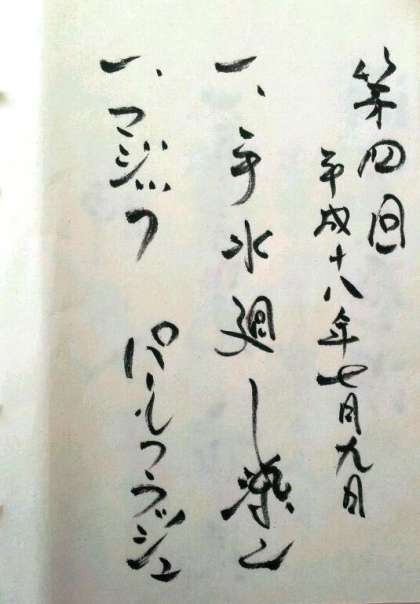 第四回
平成十八年七月九日
一、手水廻し 染二
一、マジック パールフラジュ